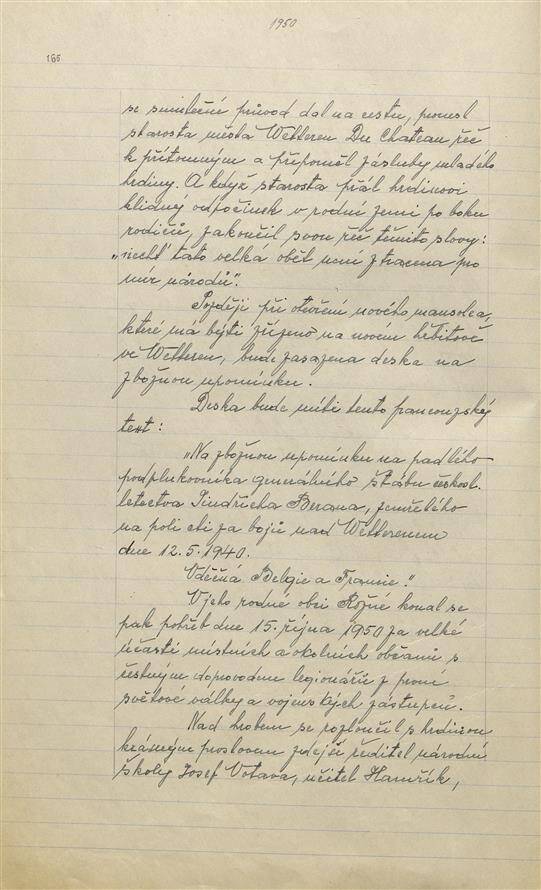 1950
165
se smuteční průvod dal na cestu, pronesl
starosta města Wetteren Du Chateau řeč
k přítomným a připoměl zásluhy mladého
hrdiny. A když starosta přál hrdinovi
klidný odpočinek v rodné zemi po boku
rodičů, zakončil svou řeč těmito slovy:
„nechť tato velká oběť není ztracena pro
mír národů".
Později při otevření nového mausolea,
které má býti zřízeno na novém hřbitově
ve Wetteren, bude zasazena deska na
zbožnou upomínku.
Deska bude míti tento francouzský
text:
„Na zbožnou upomínku na padlého
podplukovníka generálního štábu českosl.
letectva Jindřicha Berana, zemřelého
na poli cti za bojů nad Wetterenem
dne 12.5.1940.
Vděčná Belgie a Francie."
V jeho rodné obci Rožné konal se
pak pohřeb dne 15. října 1950 za velké
účasti místních a okolních občanů s
čestným doprovodem legionářů z první
světové války a vojenských zástupců.
Nad hrobem se rozloučil s hrdinou
krásným proslovem zdejší ředitel národní
školy Josef Votava, učitel Hamřík,